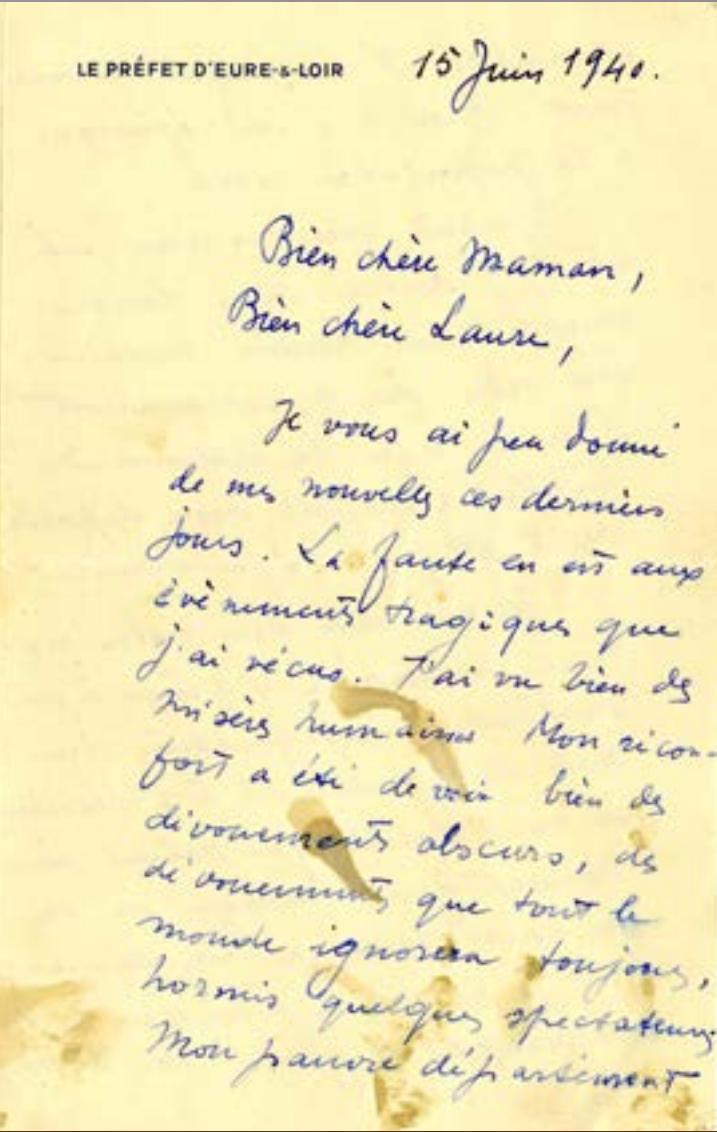 LE PRÉFET D'EURE-&-LOIR
15 Juin 1940.
Bien chère Maman,
Bien chère Laure,
Je vous ai peu donné
de mes nouvelles ces derniers
jours. La faute en est aux
évènements tragiques que
j'ai vécus. J'ai vu bien des
misères humaines Mon récon-
fort a été de voir bien des
dévouements obscurs, des
dévouements que tout le
monde ignorera toujours,
hormis quelques spectateurs.
Mon pauvre département